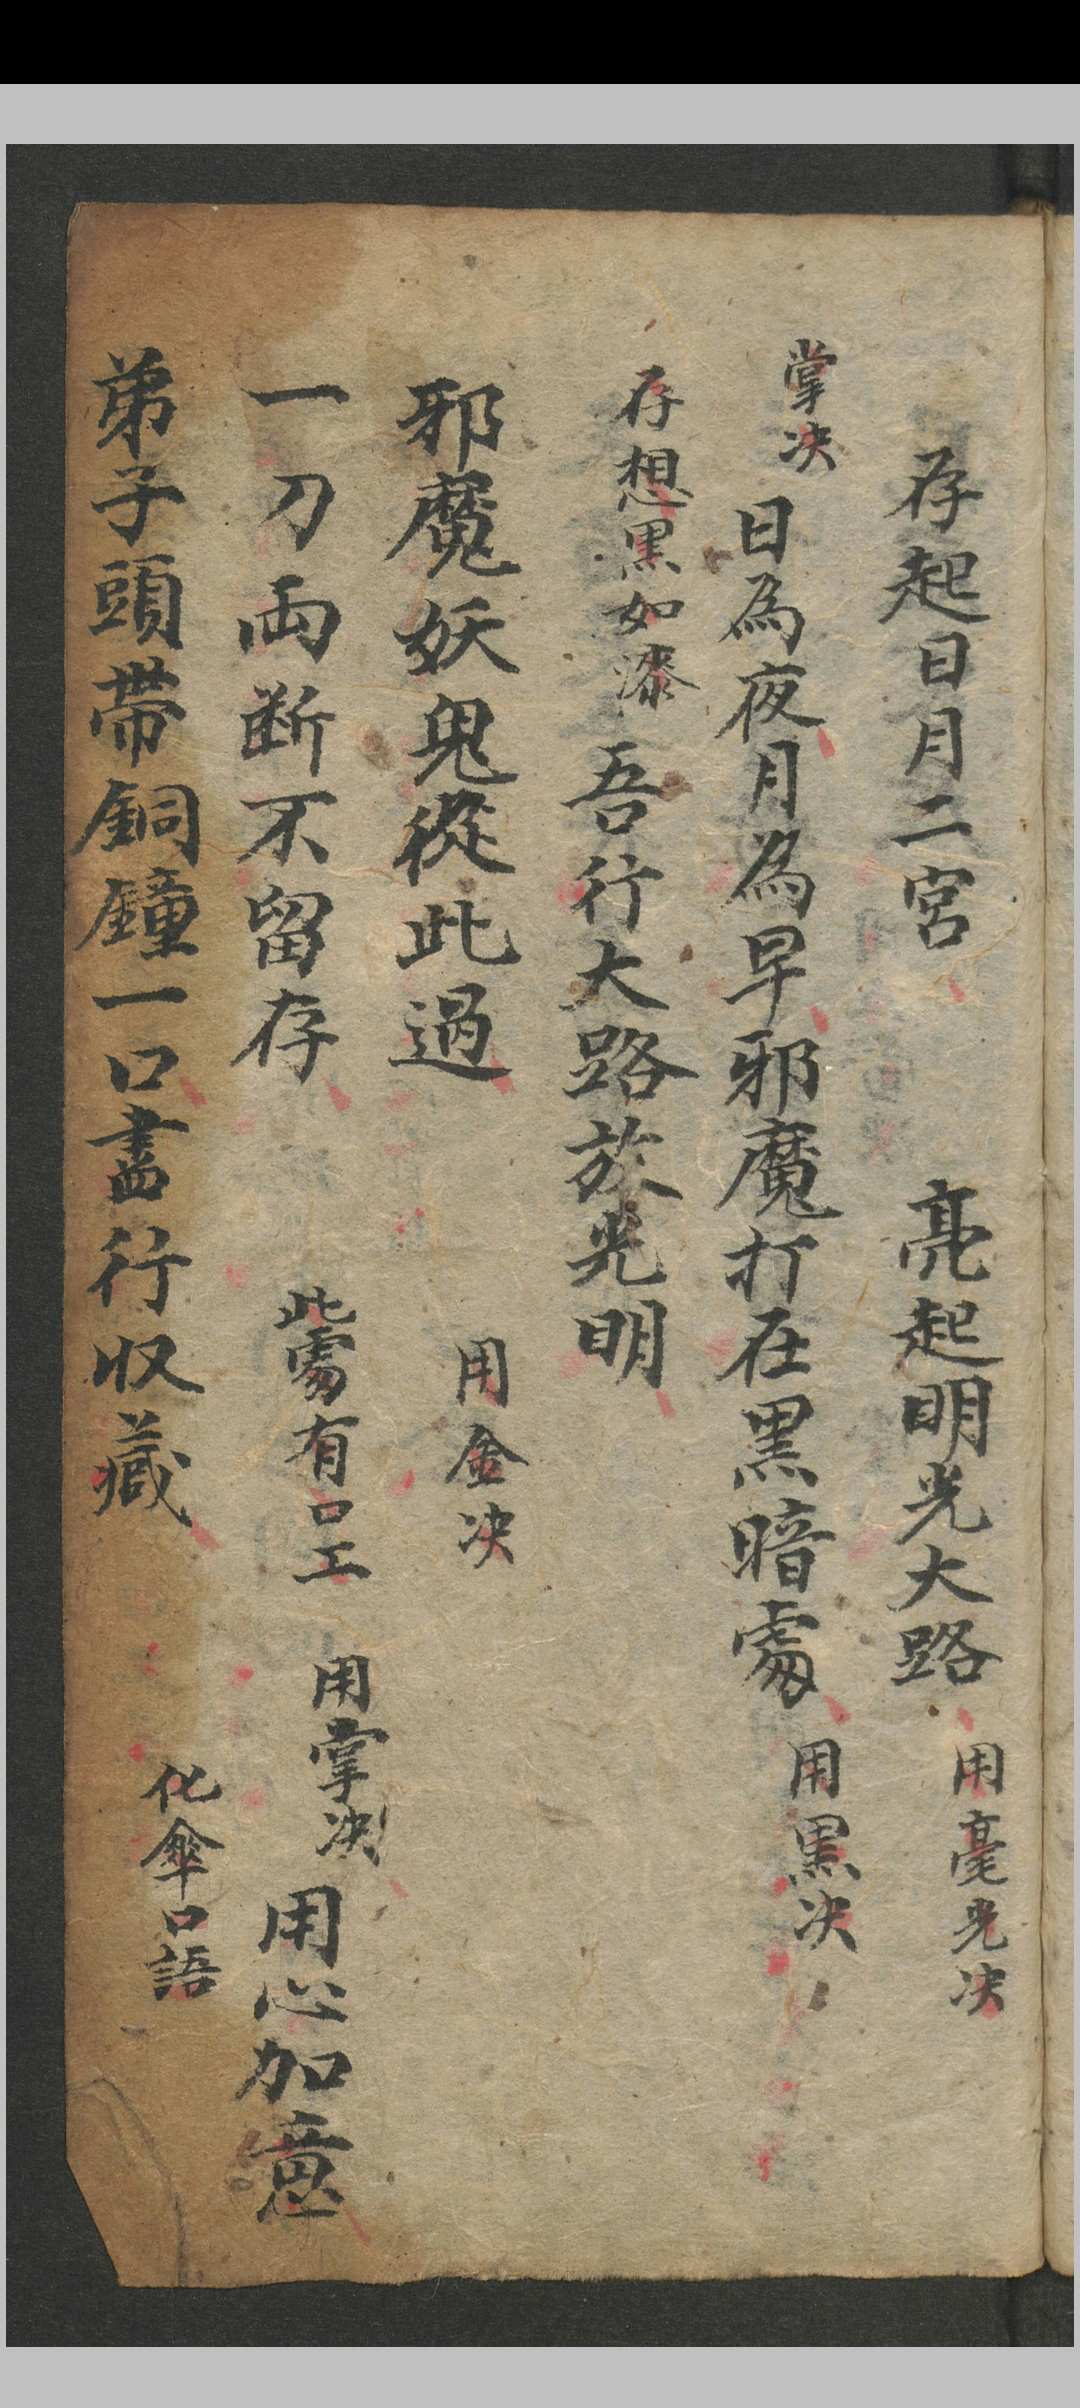 存起日月二宮　亮起明光大路　用毫光决
掌决　日為夜月為早邪魔打在黑暗處　用黑决
存想黑如漆　吾行大路放光明
邪魔妖鬼從此過　用金决
一刀両断不留存　此處有口工　用掌决　用心加意
弟子頭帶銅鐘一口盡行收藏　化傘口語